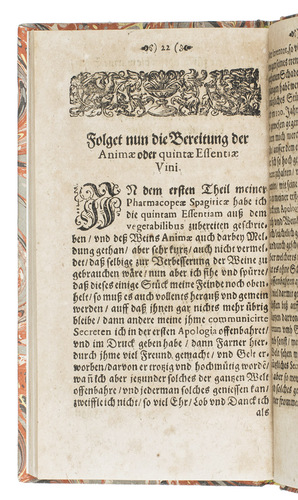 22
Folget nun die Bereitung der
Animæ oder quintæ Essentiæ
Vini.
IN dem ersten Theil meiner
Pharmacopeæ Spagiricæ habe ich
die quintam Essentiam auß dem
vegetabilibus zubereiten geschrie-
ben / und deß Weins Animæ auch darbey Mel-
dung gethan / aber sehr kurtz / auch nicht vermel-
det / daß selbige zur Verbesserung der Weine zu
gebrauchen wäre / nun aber ich sihe und spürte /
daß dieses einige Stück meine Feinde noch oben-
helt / so muß es auch vollents herauß und gemein
werden / auff daß ihnen gar nichts mehr übrig
bleibe / dann andere meine ihme communicirte
Secreten ich in der ersten Apologia offenbahret /
und im Druck geben habe / dann Farner hier-
durch ihme viel Freund gemacht / und Gelt er-
worben / darvon er trotzig und hochmütig wordē /
wañ ich aber jezunder solches der gantzen Welt
offenbahre / und jederman solches geniessen kan /
zweiffle ich nicht / so viel Ehr / Lob und Danck ich
als